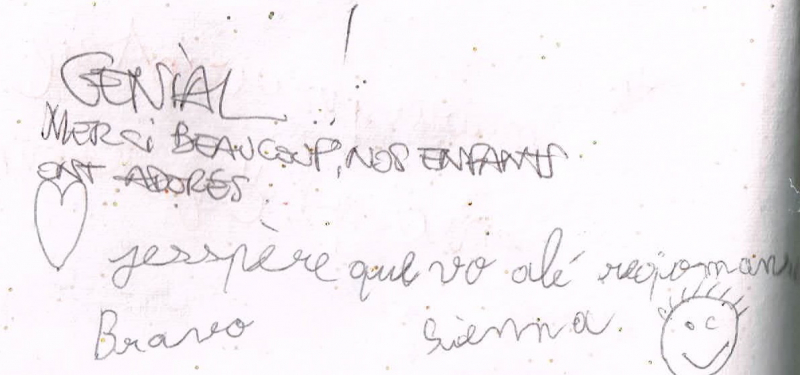 GENIAL
MERCI BEAUCOUP, NOS ENFANTS
ONT ADORÉS
jesspère que vo alé
Bravo Sienna